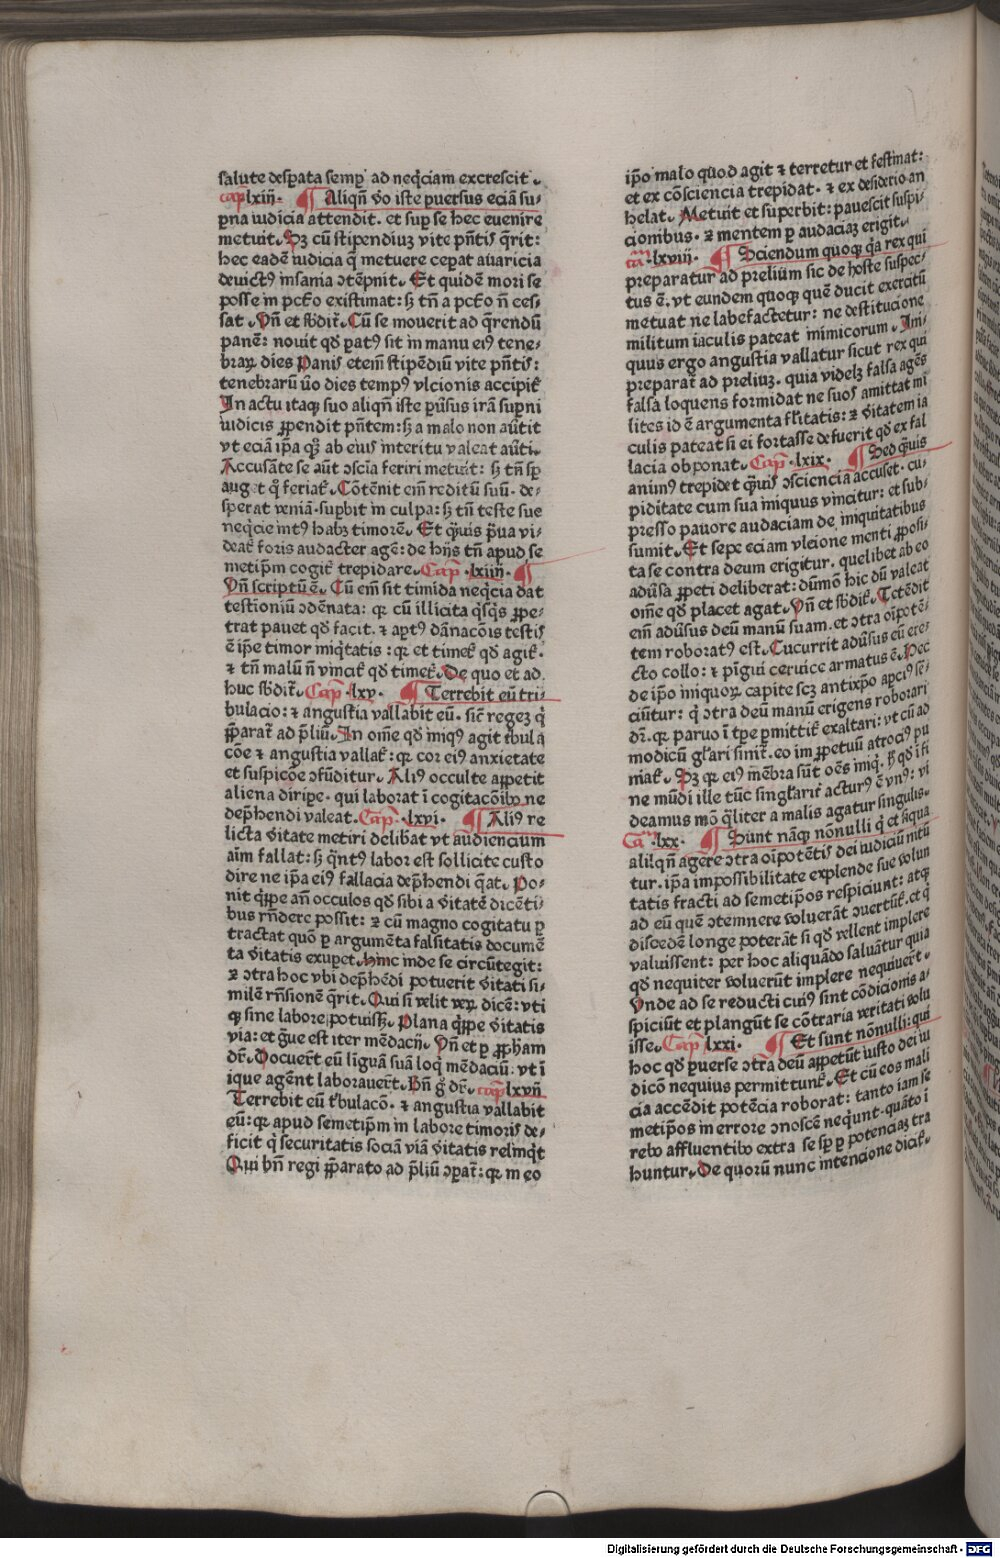 salute desꝑata semꝑ ad neq̄ciam excrescit
cap̄ lxiii. ¶ Aliqn̄ v̄o iste ꝑuersus eciā su-
ꝑna iudicia attendit. et suꝑ se hec euenire
metuit. Sꝫ cū stipendiuꝫ vite pn̄tis q̄rit:
hec eadē iudicia q̄ metuere ceꝑat auaricia
deuictꝰ insania ↄtēpnit. Et quidē mori se
posse in pctō existimat: sꝫ tn̄ a pctō nō ces
sat. Vn̄ et sb̄dit̄. Cū se mouerit ad q̄rendū
panē: nouit qd̄ ꝑatꝰ sit in manu eiꝰ tene-
braꝝ dies Panis eteīm stipēdiū vite pn̄tis:
tenebrarū v̄o dies tempꝰ vlcionis accipit̄
In actu itaqꝫ suo aliqn̄ iste ꝑuersus irā suꝑni
iudicis ꝓpendit pn̄tem: sꝫ a malo non auūtit
vt eciā ip̄a qꝫ ab eius interitu valeat aūti.
Accusāte se aūt ↄscīa feriri metuit: sꝫ tn̄ sꝑ
auget q̄ feriat̄. Cōtēnit em̄ reditū suū. de-
sperat veniā. suꝑbit in culpa: sꝫ tn̄ teste sue
neq̄cie intꝰ habꝫ timorē. Et q̄uis ꝑua vi-
deat̄ foris audacter agē: de hijs tn̄ apud se
metip̄m cogit̄ trepidare. Cap̄ .lxiiii. ¶
Vn̄ scriptū ē. Cū em̄ sit timida neq̄cia dat
testioniū ↄdēnata: qꝛ cū illicita q̄sqꝫ ꝑpe-
trat pauet qd̄ facit. ⁊ aptꝰ dānacōis testis
ē ip̄e timor iniq̄tatis: qꝛ et timet̄ qd̄ agit̄.
⁊ tn̄ malū nō vincit̄ qd̄ timet̄. De quo et ad
huc sb̄dit̄. Cap̄ .lxv. ¶ Terrebit eū tri-
bulacio: ⁊ angustia vallabit eū. sic̄ regeꝫ q̄
p̄parat̄ ad p̄liū. In om̄e qd̄ iniqꝰ agit t̄bula
cōe ⁊ angustia vallat̄: qꝛ cor eiꝰ anxietate
et suspicōe ↄfūditur. Aliꝰ occulte appetit
aliena diripe. qui laborat ī cogitacōibꝰ ne
dep̄hendi valeat. Cap̄ .lxvi. ¶ Aliꝰ re
licta v̄itate metiri delibat vt audiencium
aīm fallat: sꝫ q̄ntꝰ labor est sollicite custo
dire ne ip̄a eiꝰ fallacia dep̄hendi q̄at. Po-
nit q̄ppe an̄ occulos qd̄ sibi a v̄itatē dicēti-
bus rn̄dere possit: ⁊ cū magno cogitatu ꝑ
tractat quō ꝑ argumēta falsitatis documē
ta v̄itatis exuꝑet. hinc inde se circūtegit:
⁊ ↄtra hoc vbi dep̄hēdi potuerit v̄itati si-
milē rn̄sionē q̄rit. Qui si velit verꝫ dicē: vti
qꝫ sine labore potuissꝫ. Plana q̄ppe v̄itatis
via: et ḡue est iter mēdacij. Vn̄ et ꝑ ꝓph̄am
dr̄. Docuer̄t eū līguā suā loqꝫ mēdaciū: vt ī
ique agēnt laborauer̄t. Bn̄ ḡ dr̄. cap̄ lxvii
Terrebit eū t̄bulacō. ⁊ angustia vallabit
eū: qꝛ apud semetip̄m in labore timoris de-
ficit q̄ securitatis sociā viā v̄itatis relinq̄t
Qui bn̄ regi p̄parato ad p̄liū ↄparat̄: qꝛ in eo
ip̄o malo quod agit ⁊ terretur et festinat:
et ex cōsciencia trepidat. ⁊ ex desiderio an
helat. Metuit et superbit: pauescit suspi-
cionibus. ⁊ mentem ꝑ audaciaꝫ erigit.
ca᷈ .lxviii. ¶ Sciendum quoqꝫ q̄a rex qui
preparatur ad prelium sic de hoste suspec-
tus ē. vt eundem quoqꝫ quē ducit exercitū
metuat ne labefactetur: ne destitucione
militum iaculis pateat inimicorum. Ini-
quus ergo angustia vallatur sicut rex qui
preparat̄ ad preliuꝫ. quia videlꝫ falsa agēs
falsa loquens formidat ne suos amittat mi
lites id ē argumenta fl̄itatis: ⁊ v̄itatem ia
culis pateat si ei fortasse defuerit qd̄ ex fal
lacia obponat. Cap̄ .lxix. ¶ Sed q̄uis
animꝰ trepidet q̄uis ↄsciencia accuset. cu-
piditate cum sua iniquus vincitur: et sub-
presso pauore audaciam de iniquitatibus
sumit. Et sepe eciam vlcione menti ꝓposi-
ta se contra deum erigitur. quelibet ab eo
adūsa ꝑpeti deliberat: dūmō hic dū valeat
om̄e qd̄ placet agat. Vn̄ et sb̄dit̄. Tetēdit
em̄ adūsus deū manū suam. et ↄtra oīpotē-
tem roboratꝰ est. Cucurrit adūsus eū ere-
cto collo: ⁊ pīgui ceruice armatus ē. Hec
de ip̄o iniquoꝝ capite scꝫ antixp̄o apciꝰ sē-
ciūtur: q̄ ↄtra deū manū erigens roborari
dr̄. qꝛ paruo ī tp̄e ꝑmittit̄ exaltari: vt cū ad
modicū gl̄ari sinit̄. eo im ꝑpetuū atrociꝰ pu
niat̄. Sꝫ qꝛ eiꝰ mēbra sūt oēs iniq̄. hꝫ qd̄ ī fi
ne mūdi ille tūc singl̄arit̄ acturꝰ ē vnꝰ: vi
deamus mō q̄liter a malis agatur singulis.
Ca᷈ .lxx. ¶ Sunt nāqꝫ nōnulli q̄ et si qua
aliqn̄ agere ↄtra oīpotētis dei iudiciū nitū
tur. ip̄a impossibilitate explende sue volun
tatis fracti ad semetip̄os respiciunt: atqꝫ
ad eū quē ↄtemnere voluerāt ↄuertūt̄. et q̄
discedē longe poterāt si qd̄ vellent implere
valuissent: per hoc aliquādo saluātur quia
qd̄ nequiter voluerūt implere nequiuer̄t.
Vnde ad se reducti cuiꝰ sint cōdicionis a-
spiciūt et plangūt se cōtraria veritati volu
isse. Cap̄ .lxxi. ¶ Et sunt nōnulli: qui
hoc qd̄ ꝑuerse ↄtra deū appetūt iusto dei iu
dicō nequius permittunt̄. Et cū eos mali
cia accēdit potēcia roborat: tanto iam se
metip̄os in errore ↄnoscē neq̄unt. quāto ī
rebꝰ affluentibꝰ extra se sꝑ ꝑ potenciaꝫ tra
huntur. De quorū nunc intencione dicit̄.
Digitalisierung gefördert durch die Deutsche Forschungsgemeinschaft - DFG